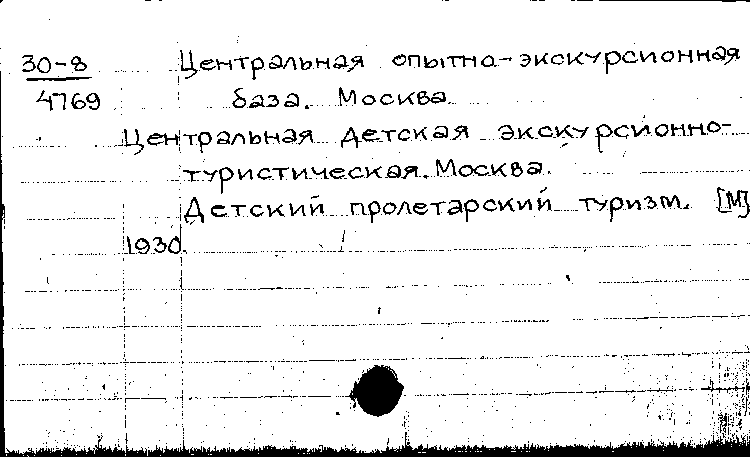 30-8 Центральная опытно-экскурсионная
4769 база. Москва
Центральная детская экскурсионно-
туристическая. Москва.
Детский пролетарский туризм. [М]
1930.